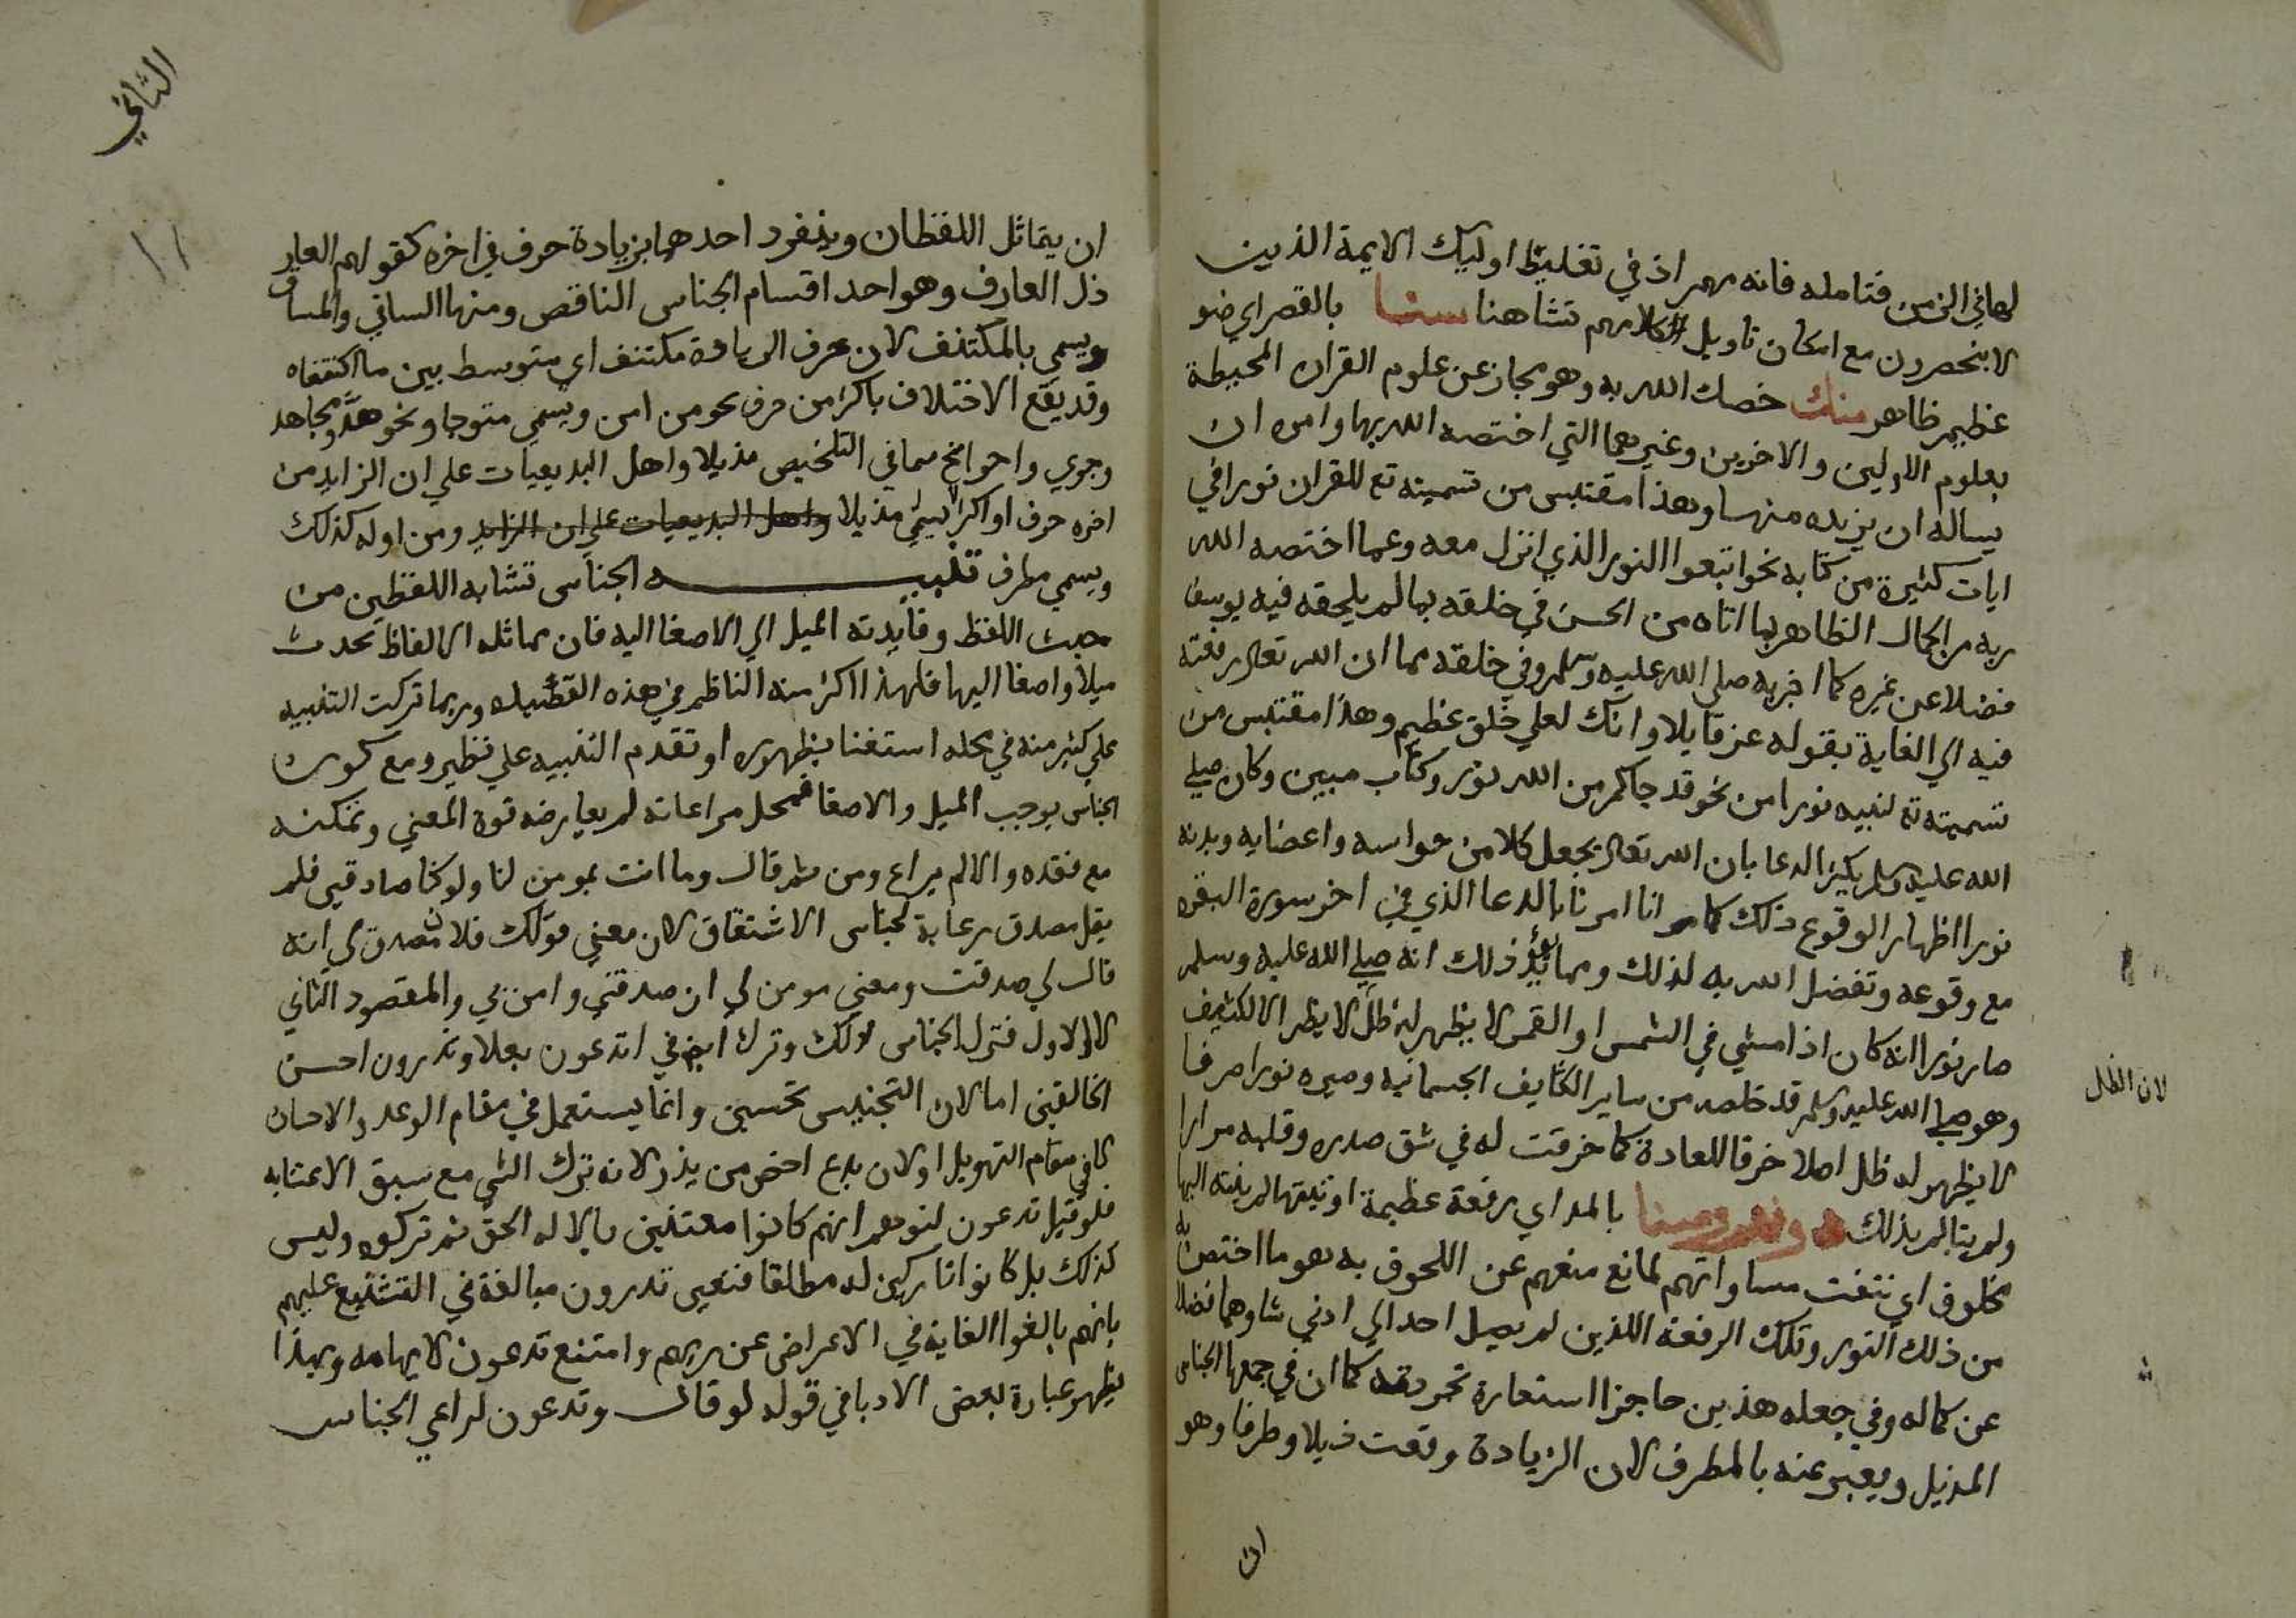 لها في الزمن فتامله فانه مهم اذ في تغليظ اوليك الايمة الذين
لا ينحصرون مع امكان تاويل كلامهم تشاهنا سنا بالقصر اي ضو
عظيم ظاهر منك خصك الله به وهو مجاز عن علوم القران المحيطة
بعلوم الاولين والاخرين وغيرهما التي اختصه الله بها وامره ان
يساله ان يزيده منها وهذا مقتبس من تسميته تع للقران نورا في
ايات كثيرة من كتابه نحو اتبعوا النور الذي انزل معه وعما اختصه الله
به من الجمال الظاهر بما اتاه من الحسن في خلقه بما لم يلحقه فيه يوسف
فضلا عن غيره كما اخبر به صلى الله عليه وسلم وفي خلقه مما ان الله تعالى رفعته
فيه الي الغاية بقوله عز قايلا وانك لعلي خلق عظيم وهذا مقتبس من
تسميته تع لنبيه نورا من نحو قد جاكم من الله نور وكتاب مبين وكان صلى
الله عليه وسلم يكثر الدعا بان الله تعالى يجعل كلا من حواسه واعضايه وبدنه
نورا اظهار الوقوع ذلك كما مر انا امرنا بالدعا الذي في اخر سورة البقره
مع وقوعه وتفضل الله به لذلك ومما يؤيد ذلك انه صلي الله عليه وسلم
صار نورا انه كان اذا مشي في الشمس او القمر لا يظهر له ظل لا يظهر الا لكثيف
لان الظل
وهو صلي الله عليه وسلم قد خلصه من ساير الكثايف الجسمانيه وصيره نورا صرفا
لا يظهر له ظل اصلا خرقا للعادة كما خرقت له في شق صدره وقلبه مرارا
ولم يتالم بذلك ودونهم وسنا بالمد اي رفعة عظيمة اوتيتها لم يلحقه اليها
مخلوق اي نتفت مساواتهم لمانع منعهم عن اللحوق به هو ما اختص به
من ذلك النور وتلك الرفعة اللذين لم يصل احد الي ادني شاوهما فضلا
عن كماله وفي جعله هذين حاجزا استعارة تجريدية كما ان في جمعها الجناس
المذيل ويعبر عنه بالمطرف لان الزيادة وقعت ذيلا وطرفا وهو
ان
الثاني
١١
ان يتماثل اللفظان وينفرد احدهما بزيادة حرف في اخره كقولهم العار
ذل العارف وهو احد اقسام الجناس الناقص ومنها الساق والمساق
ويسمي بالمكتنف لان حرف الزيادة مكتنف اي متوسط بين ما اكتنفاه
وقد يقع الاختلاف باكثر من حرف نحو من امن ويسمي متوجا ونحو هد ومجاهد
وجوي واجوانح سمافي التلخيص مذيلا واهل البديعيات علي ان الزايد من
اخره حرف او اكثر يسمي مذيلا واهل البديعيات علي ان الزايد ومن اوله كذلك
ويسمي مطرف تنبيه الجناس تشابه اللفظين من
حيث اللفظ وفايدته الميل الي الاصغا اليه فان مماثله الالفاظ تحدث
ميلا واصغا اليها فلهذا اكثر منه الناظم في هذه القصيده وربما تركت التنبيه
علي كثير منه في محله استغنا بظهوره او تقدم التنبيه علي نظيره ومع كون
الجناس يوجب الميل والاصغا فمحل مراعاته لم يعارضه قوة المعني وتمكنه
مع فقده والا لم يراع ومن ثم قال وما انت بمومن لنا ولو كنا صادقين فلم
يقل مصدق رعاية لجناس الاشتقاق لان معني قولك فلان مصدق لي انه
قال لي صدقت ومعني مومن لي ان صدقني وامن بي والمقصود الثاني
لا الاول فترك الجناس لذلك وترك ايض في اتدعون بعلا وتذرون احسن
الخالقين اما لان التجنيس تحسين وانما يستعمل في مقام الوعد والاحسان
لا في مقام التهويل او لان يدع اخص من يذر لانه ترك الشي مع سبق الاعتنا به
فلو قيل تدعون لتوهم انهم كانوا معتنين بالاله الحق ثم تركوه وليس
كذلك بل كانوا تاركين له مطلقا فتعين تذرون مبالغة في التشنيع عليهم
بانهم بالغوا الغاية في الاعراض عن ربهم وامتنع تدعون لايهامه وبهذا
يظهر عبارة بعض الادبا في قوله لو قال وتدعون لراعي الجناس